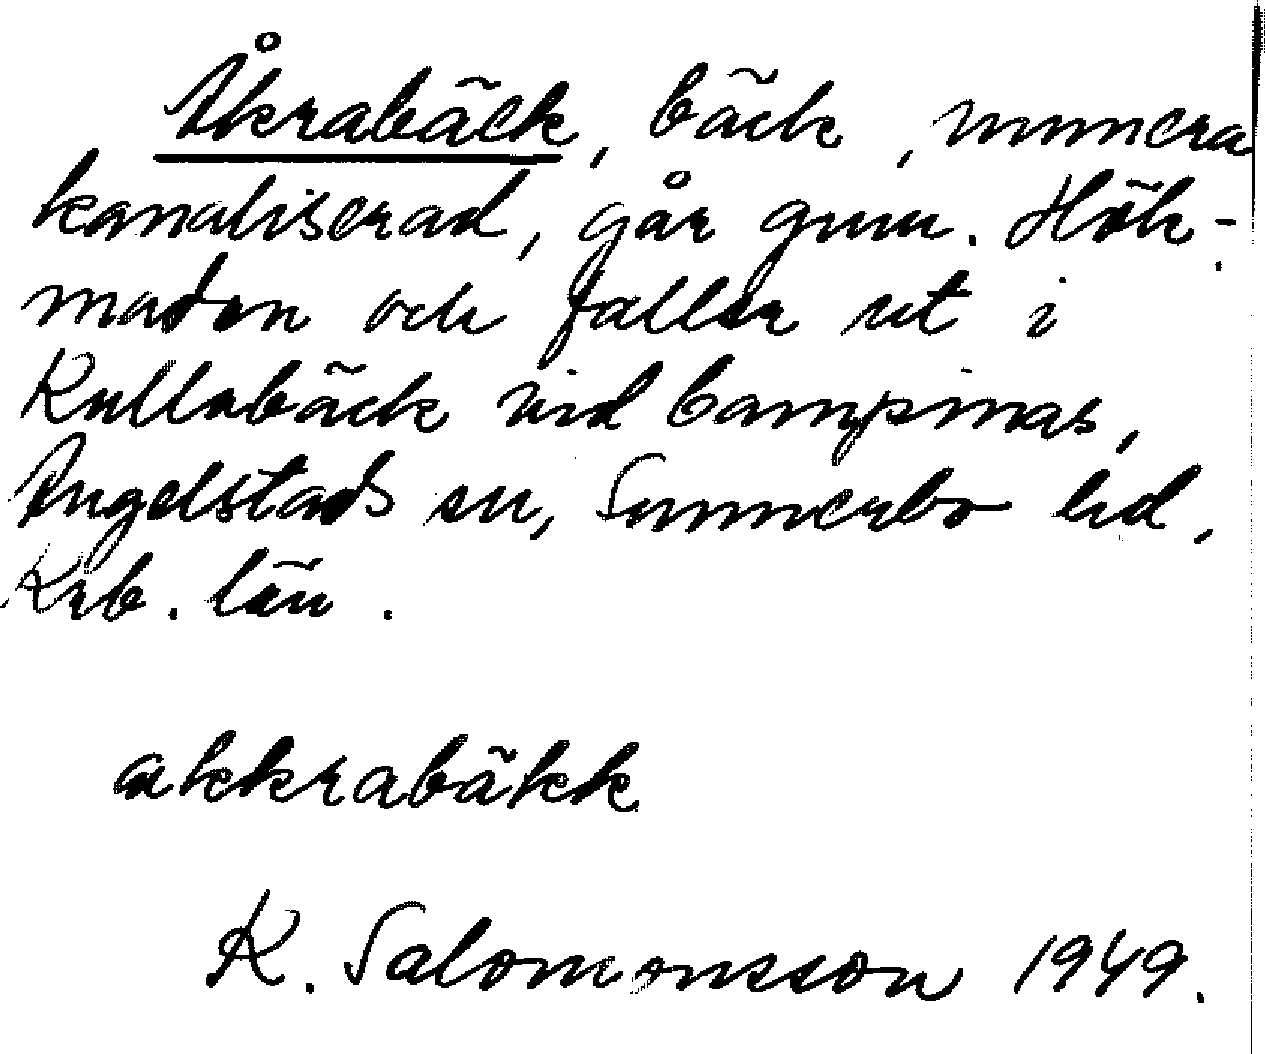 Åkrabäck, bäck, numera
kanaliserad, går gnm. Hök-
maden och faller ut i
Kullabäck vid Campinas,
Angelstads sn, Sunnerbo hd,
Krb. län.
akkrabäkk
K. Salomonsson 1949.